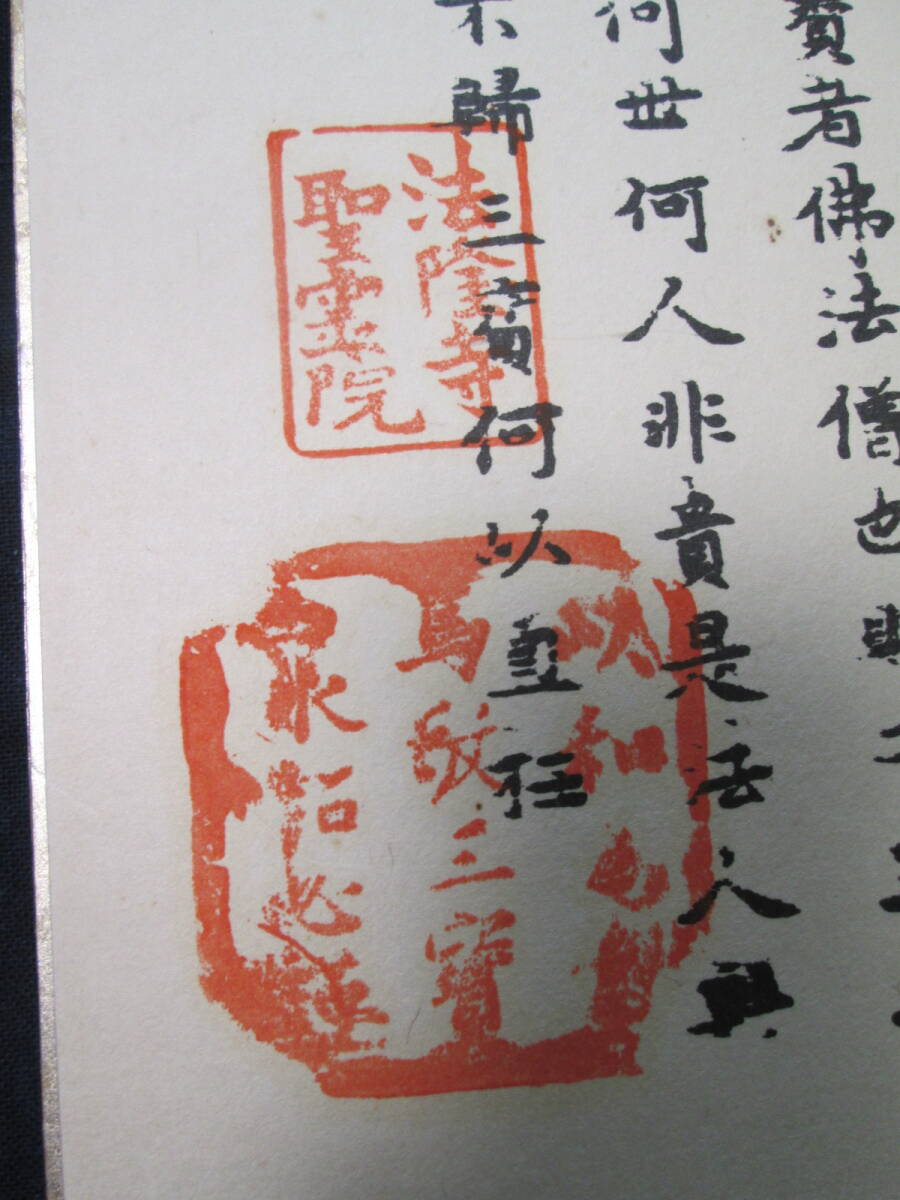 寶者佛法僧也則
何世何人非貴是法人
不歸三寶何以直枉
法隆寺
聖霊院
以和為貴
篤敬三寶
承詔必謹